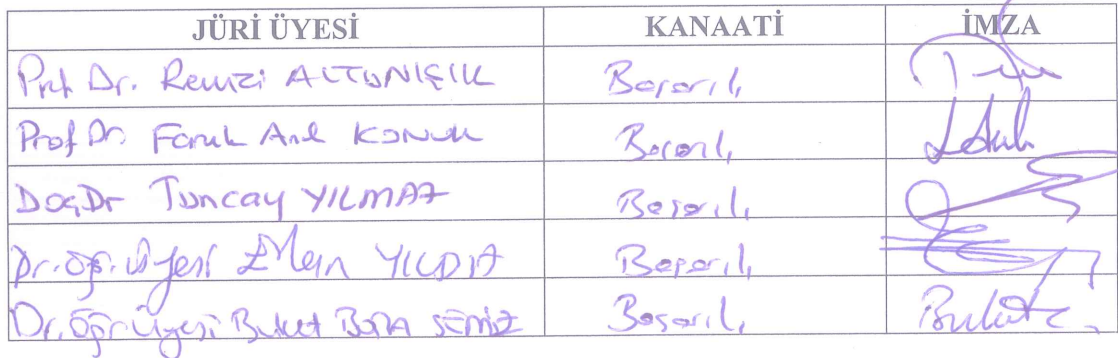 JÜRİ ÜYESİ KANAATİ İMZA
Prof. Dr. Remzi ALTUNIŞIK Başarılı
Prof Dr. Faruk Anıl KONUK Başarılı
Doç Dr Tuncay YILMAZ Başarılı
Dr. Öğr. Üyesi YILDIZ Başarılı
Dr. Öğr. Üyesi Buket BORA SEMİZ Başarılı